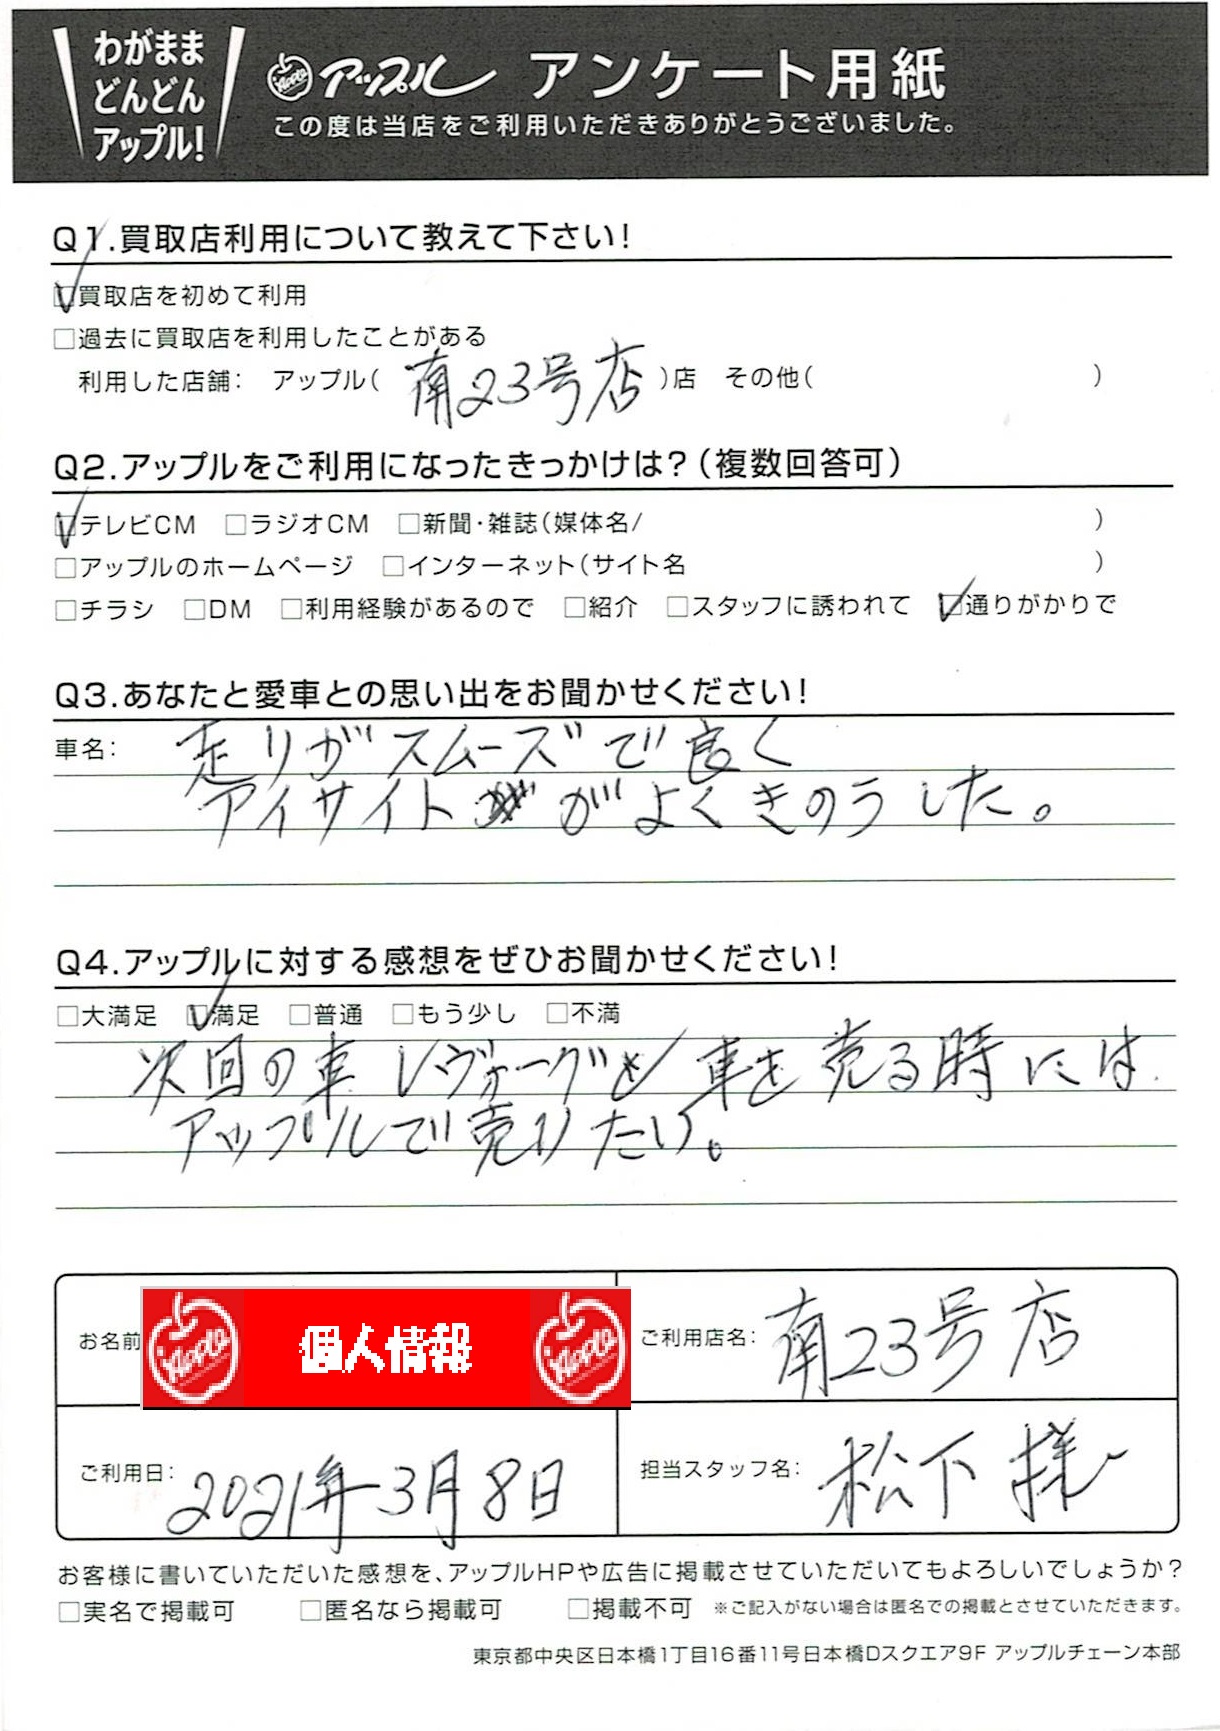 わがまま
どんどん
アップル!
Apple アップル アンケート用紙
この度は当店をご利用いただきありがとうございました。
Q1.買取店利用について教えて下さい!
☑買取店を初めて利用
□過去に買取店を利用したことがある
利用した店舗: アップル( 南23号店 )店 その他( )
Q2.アップルをご利用になったきっかけは?(複数回答可)
☑テレビCM □ラジオCM □新聞・雑誌(媒体名/ )
□アップルのホームページ □インターネット(サイト名 )
□チラシ □DM □利用経験があるので □紹介 □スタッフに誘われて ☑通りがかりで
Q3.あなたと愛車との思い出をお聞かせください!
車名: 走りがスムーズで良く
アイサイトがよくきのうした。
Q4.アップルに対する感想をぜひお聞かせください!
□大満足 ☑満足 □普通 □もう少し □不満
次回の車 レヴォーグを 車を売る時には
アップルで売りたい。
お名前 Apple 個人情報 Apple
ご利用店名: 南23号店
ご利用日: 2021年3月8日
担当スタッフ名: 松下様
お客様に書いていただいた感想を、アップルHPや広告に掲載させていただいてもよろしいでしょうか?
□実名で掲載可 □匿名なら掲載可 □掲載不可 ※ご記入がない場合は匿名での掲載とさせていただきます。
東京都中央区日本橋1丁目16番11号日本橋Dスクエア9F アップルチェーン本部